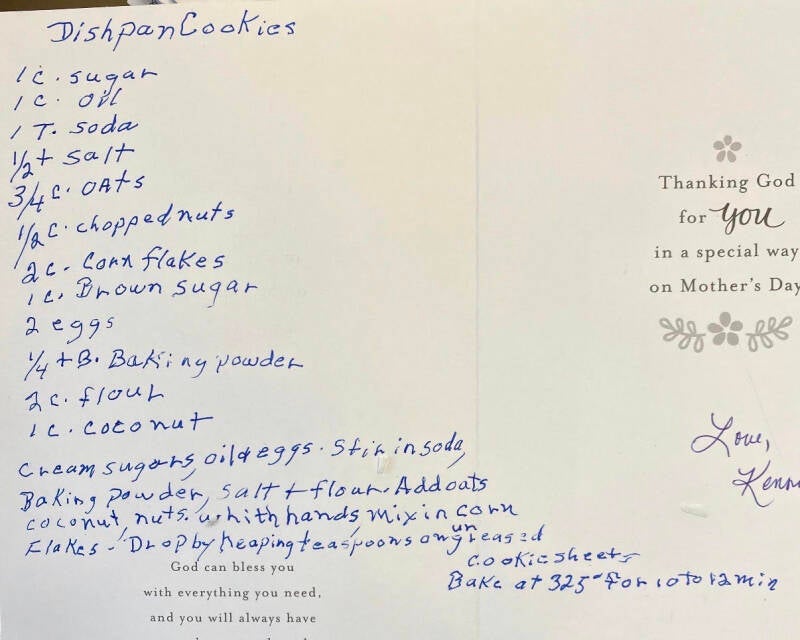 Dishpan Cookies
1 c. sugar
1 c. oil
1 T. soda
1/2 t salt
3/4 c. oats
1/2 c. chopped nuts
2 c. Corn flakes
1 c. Brown sugar
2 eggs
1/4 t B. Baking powder
2 c. flour
1 c. coconut
Cream sugars, oil & eggs. Stir in soda,
Baking powder, salt + flour. Add oats
coconut, nuts. with hands, mix in corn
Flakes - Drop by heaping teaspoons on ungreased
cookie sheets
Bake at 325° for 10 to 12 min
God can bless you
with everything you need,
and you will always have
Thanking God
for you
in a special way
on Mother's Day
Love,